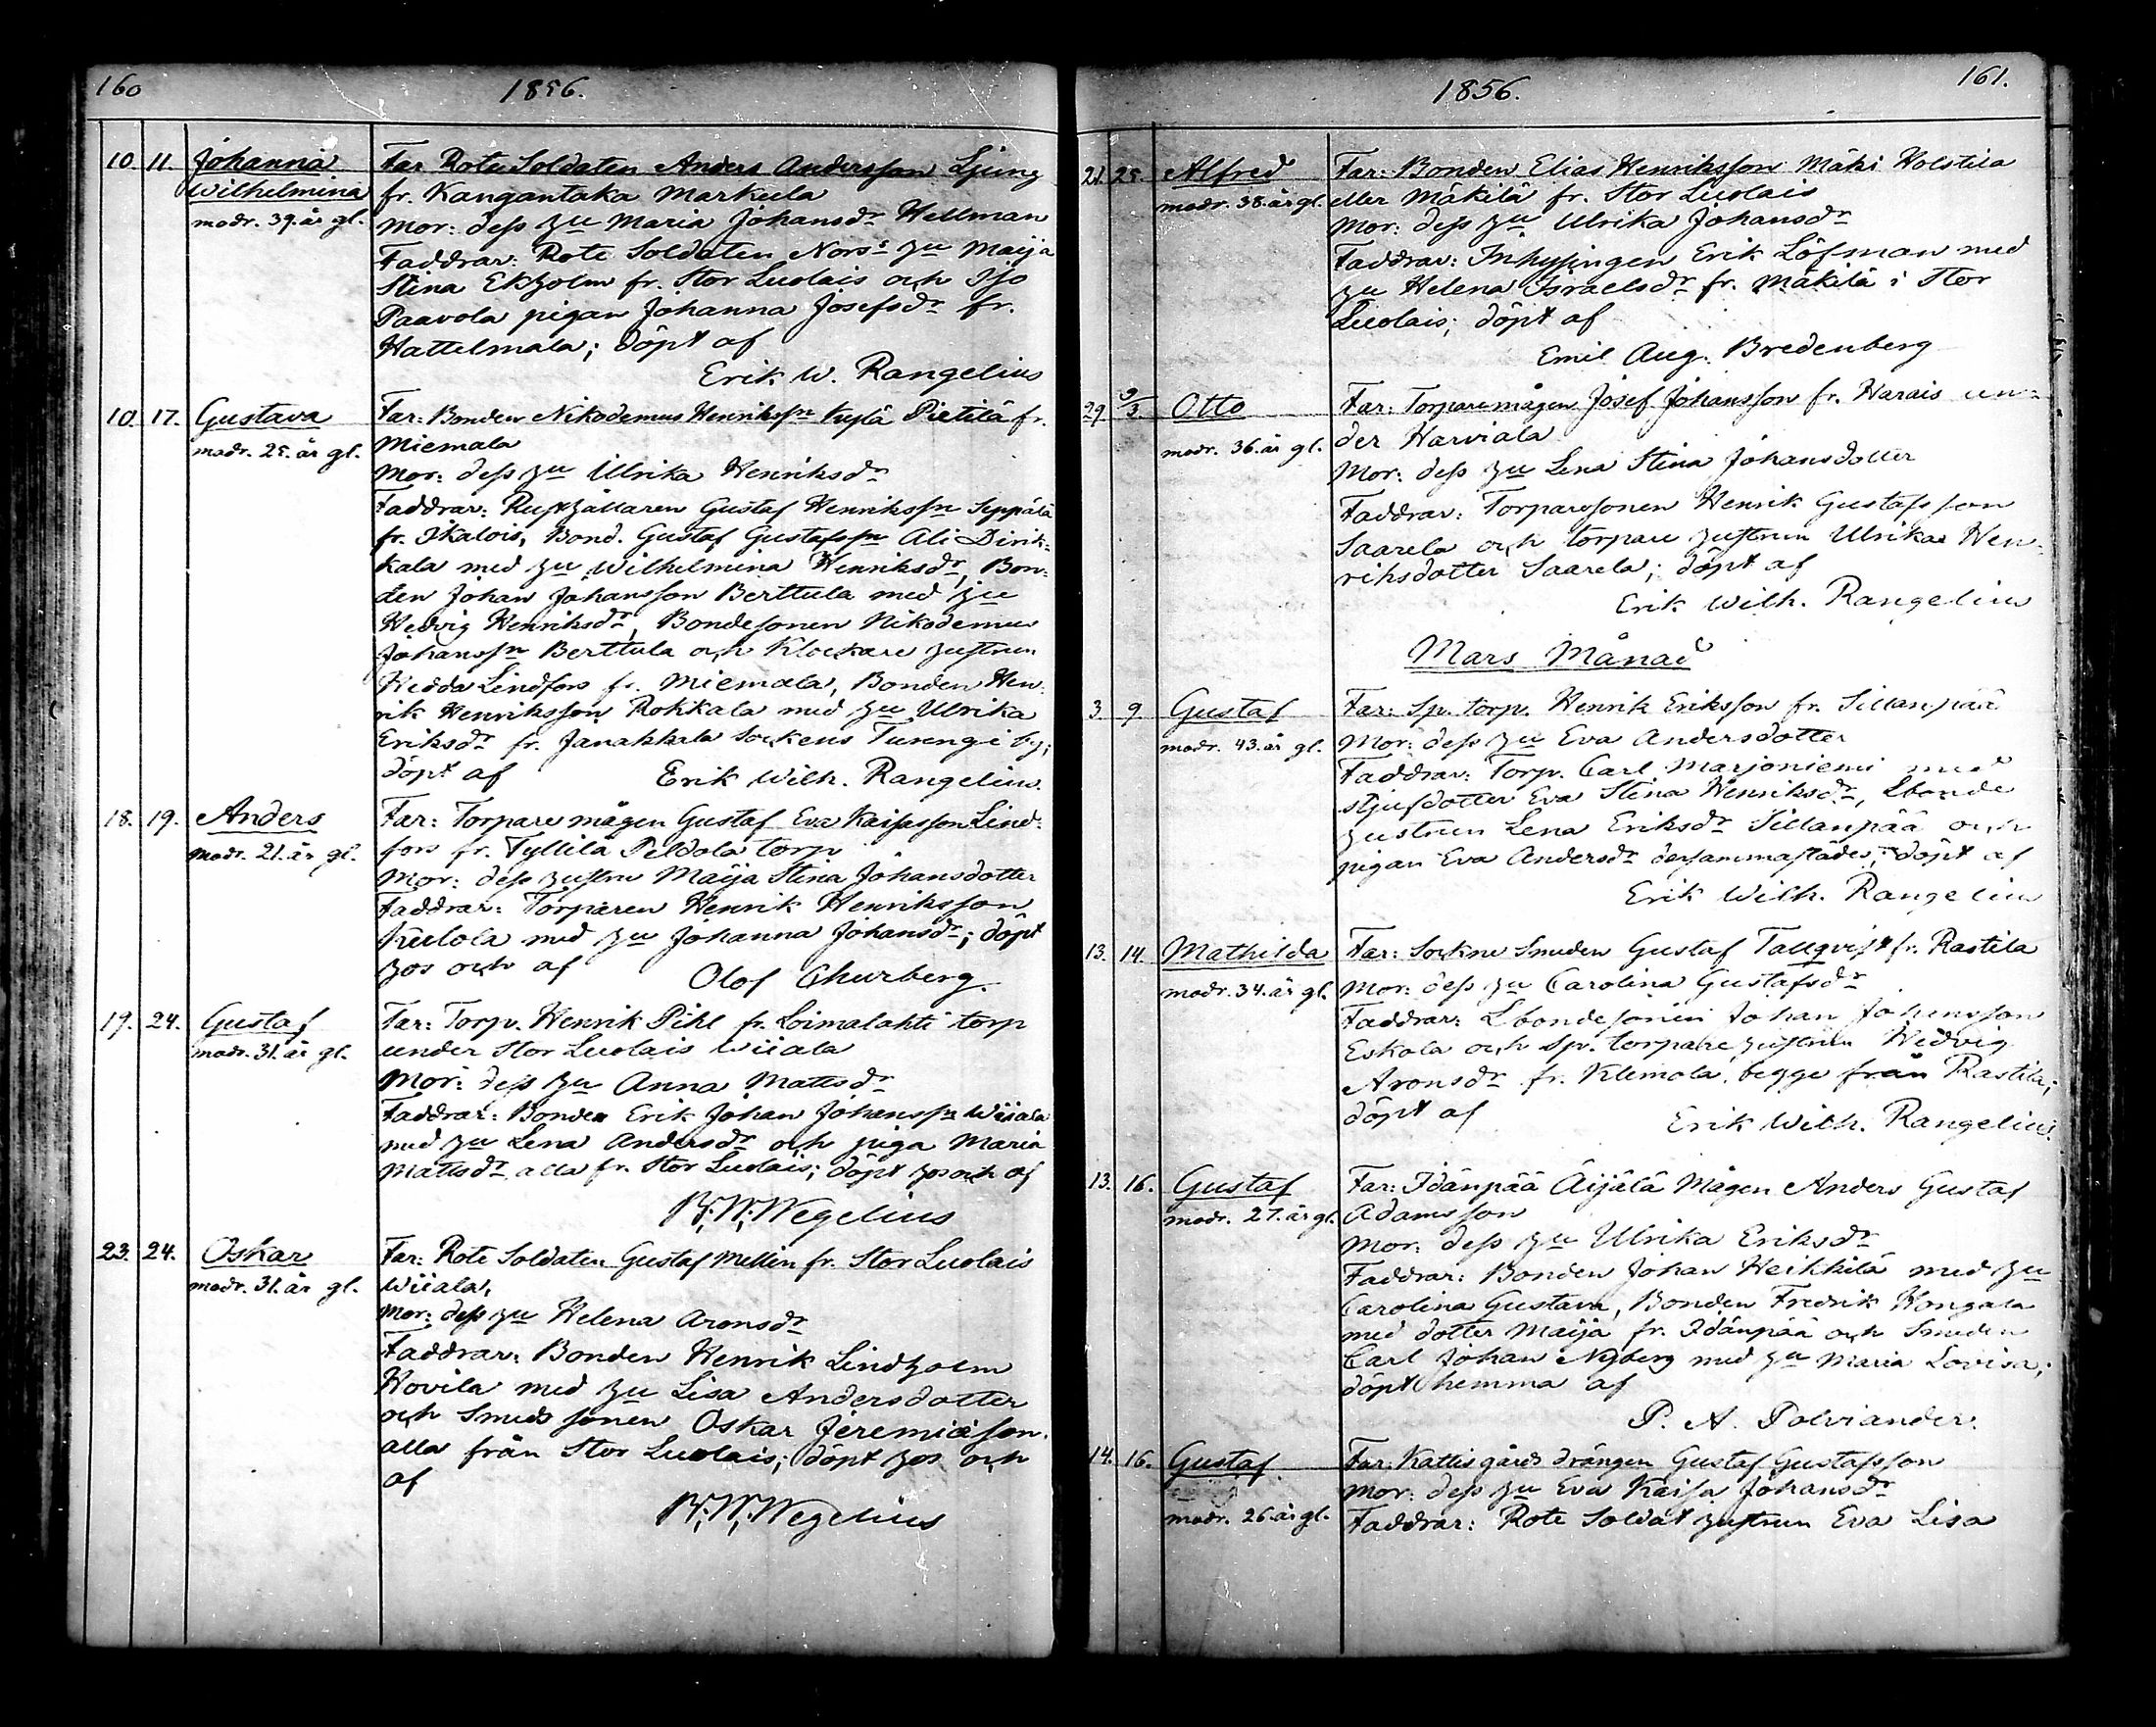 160
1856.
10. 11. Johanna Far Rote Soldaten Anders Andersson Ljung
Wilhelmina fr. Kangantaka Markula
modr. 39. år gl. Mor: dess hu Maria Johansdr Hellman
Faddrar: Rote Soldaten Nors's hu Maija
Stina Ekholm fr. Stor Luolais och Iso
Paavola pigan Johanna Josefsdr fr.
Hattelmala; döpt af
Erik W. Rangelius
10. 17. Gustava Far: Bonden Nikodemus Henrikssn Kylä Pietilä fr.
modr. 25. år gl. Miemala
Mor: dess hu Ulrika Henriksdr
Faddrar: Rusthållaren Gustaf Henrikssn Seppälä
fr. Ikalois, Bond. Gustaf Gustafssn Ali Dirik-
kala med hu Wilhelmina Henriksdr, Bon-
den Johan Johansson Berttula med hu
Hedvig Henriksdr, Bondesonen Nikodemus
Johanssn Berttula och Klockare hustrun
Hedda Lindfors fr. Miemala, Bonden Hen-
rik Henriksson Rokkala med hu Ulrika
Eriksdr fr. Janakkala Sockens Turengi by;
döpt af Erik Wilh. Rangelius.
18. 19. Anders Far: Torpare mågen Gustaf Eva Kaisasson Lind-
modr. 21. år gl. fors fr. Tyllilä Peldola torp
Mor: dess hustru Maija Stina Johansdotter
Faddrar: Torparen Henrik Henriksson
Keilola med hu Johanna Johansdr; döpt
hos och af Olof Churberg.
19. 24. Gustaf Far: Torp. Henrik Pihl fr. Loimalahti torp
modr. 31. år gl. under Stor Luolais Wiiala
Mor: dess hu Anna Mattsdr
Faddrar: Bonden Erik Johan Johanssn Wiiala
med hu Lena Andersdr och piga Maria
Mattsdr alla fr. Stor Luolais; döpt hos och af
B: W: Wegelius
23. 24. Oskar Far: Rote Soldaten Gustaf Mellin fr. Stor Luolais
modr. 31. år gl. Wiiala,
Mor: dess hu Helena Aronsdr
Faddrar: Bonden Henrik Lindholm
Hovila med hu Lisa Andersdotter
och Smeds sonen Oskar Jeremiäson.
alla från Stor Luolais; döpt hos och
af
B: W: Wegelius
1856.
161.
21. 25. Alfred Far: Bonden Elias Henriksson Mäki Holstila
modr. 38. år gl. eller Mäkilä fr. Stor Luolais
Mor: dess hu Ulrika Johansdr
Faddrar: Inhysingen Erik Löfman med
hu Helena Israelsdr fr. Mäkilä i Stor
Luolais; döpt af
Emil Aug. Bredenberg
29. 9/3 Otto Far: Torparemågen Josef Johansson fr. Harais un-
modr. 36. år gl. der Harviala
Mor: dess hu Lena Stina Johansdotter
Faddrar: Torparesonen Henrik Gustafsson
Saarela och torpare hustrun Ulrika Hen-
riksdotter Saarela; döpt af
Erik Wilh. Rangelius
Mars Månad
3 9. Gustaf Far: Sp. torp. Henrik Eriksson fr. Sillanpää
modr. 43. år gl. Mor: dess hu Eva Andersdotter
Faddrar: Torp. Carl Marjoniemi med
stjufdotter Eva Stina Henriksdr, Lbonde
hustrun Lena Eriksdr Sillanpää och
pigan Eva Andersdr dersammastädes; döpt af
Erik Wilh. Rangelius
13. 14. Mathilda Far: Sockne Smeden Gustaf Tallqvist fr. Rastila
modr. 34. år gl. Mor: dess hu Carolina Gustafsdr
Faddrar: Lbondesonen Johan Johansson
Eskola och Sp. torpare hustrun Hedvig
Aronsdr fr. Klemola, begge från Rastila;
döpt af Erik Wilh. Rangelius.
13. 16. Gustaf Far: Idänpää Äijälä Mågen Anders Gustaf
modr. 27. år gl. Adamsson
Mor: dess hu Ulrika Eriksdr
Faddrar: Bonden Johan Heikkilä med hu
Carolina Gustava, Bonden Fredrik Hongala
med dotter Maija fr. Idänpää och Smeden
Carl Johan Nyberg med hu Maria Lovisa;
döpt hemma af
P. A. Polviander.
14. 16. Gustaf Far: Kattisgårds drängen Gustaf Gustafsson
Mor: dess hu Eva Kaisa Johansdr
modr. 26. år gl. Faddrar: Rote Soldat hustrun Eva Lisa